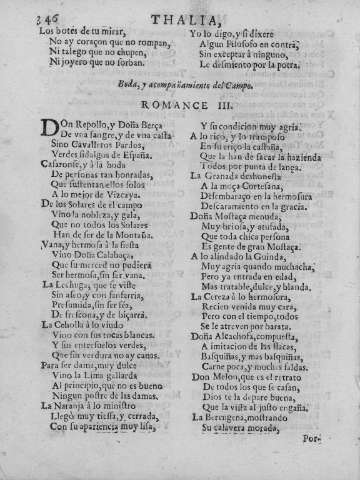 346
THALIA,
Los botes de tu mirar,
No ay coraçon que no rompan,
Ni talego que no chupen,
Ni joyero que no sorban.
Yo lo digo, y si dixere
Algun Filosofo en contra,
Sin exceptar à ninguno,
Le desmiento por la porra.
Boda, y acompañamiento del Campo.
ROMANCE III.
DOn Repollo, y Doña Berça
De vna sangre, y de vna casta
Sino Cavalleros Pardos,
Verdes fidalgos de España.
Casaronse, y à la boda
De personas tan honradas,
Que sustentan ellos solos
A lo mejor de Vizcaya.
De los Solares del Campo
Vino la nobleza, y gala,
Que no todos los Solares
Han de ser de la Montaña.
Vana, y hermosa à la fiesta
Vino Doña Calabaça,
Que su merced no pudiera
Ser hermosa, sin ser vana.
La Lechuga, que se viste
Sin aseo, y con fanfarria,
Presumida, sin ser fea,
De frescona, y de biçarra.
La Cebolla à lo viudo
Vino con sus tocas blancas,
Y sus entresuelos verdes,
Que sin verdura no ay canas.
Para ser dama, muy dulce
Vino la Lima gallarda
Al principio, que no es bueno
Ningun postre de las damas.
La Naranja à lo ministro
Llegò muy tiesa, y cerrada,
Con su apariencia muy lisa,
Y su condicion muy agria.
A lo rico, y lo tramposo
En su erizo la castaña,
Que la han de sacar la hazienda
Todos por punta de lança.
La Granada deshonesta
A la moça Cortesana,
Desembaraço en la hermosura
Descaramiento en la gracia.
Doña Mostaça menuda,
Muy briosa, y atufada,
Que toda chica persona
Es gente de gran Mostaça.
A lo alindado la Guinda,
Muy agria quando muchacha,
Pero ya entrada en edad,
Mas tratable, dulce, y blanda.
La Cereza à lo hermosura,
Recien venida muy cara,
Pero con el tiempo, todos
Se le atreven por barata.
Doña Alcachofa, compuesta,
A imitacion de las flacas,
Basquiñas, y mas basquiñas,
Carne poca, y muchas faldas.
Don Melon, que es el retrato
De todos los que se casan,
Dios te la depare buena,
Que la vista al justo engaña.
La Berengena, mostrando
Su calavera morada,
Por-